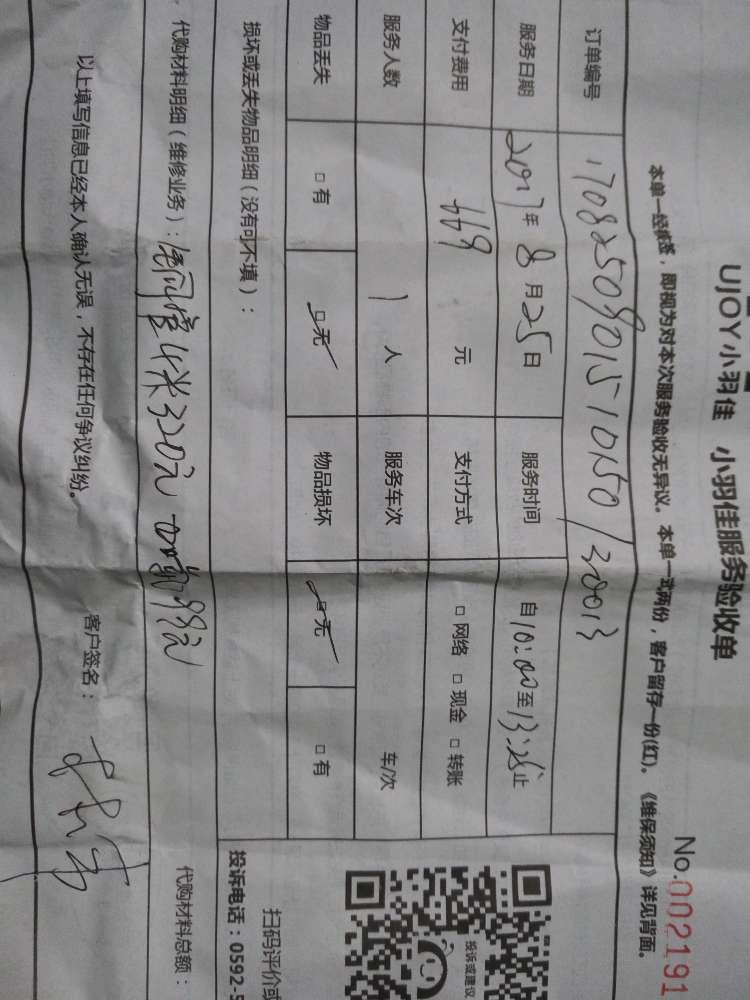 UJOY小羽佳 小羽佳服务验收单
No.002191
本单一经签, 即视为对本次服务验收无异议。本单一式两份, 客户留存一份(红)。《维保须知》详见背面。
订单编号 1708250901510150130013
服务日期 2017年8月25日 服务时间 自10:00至13:25止
支付费用 669 元 支付方式 □网络 □现金 □转账
服务人数 1 人 服务车次 车/次
物品丢失 □有 □无 物品损坏 □无 □有
损坏或丢失物品明细(没有可不填):
代购材料明细(维修业务): 铜管4米320元 99元
代购材料总额:
以上填写信息已经本人确认无误, 不存在任何争议纠纷。 客户签名:
投诉或建议
扫码评价或
投诉电话: 0592-5